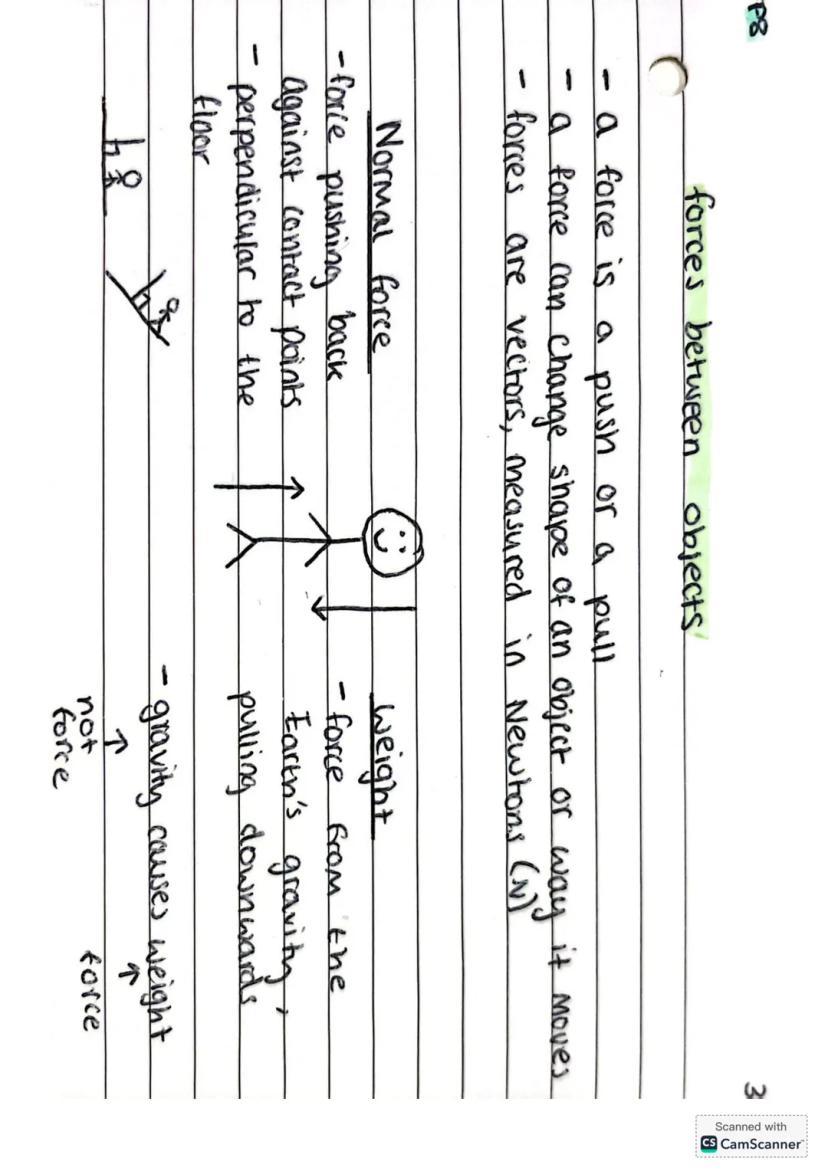 P8
3
forces between objects
- a force is a push or a pull
- a force can change shape of an object or way it moves
- forces are vectors, measured in Newtons (N)
Normal force
- force pushing back
against contact points
- perpendicular to the
floor
weight
- force from the
Earth's gravity,
pulling downwards
- gravity causes weight
↑ ↑
not force
force
Scanned with
CS CamScanner